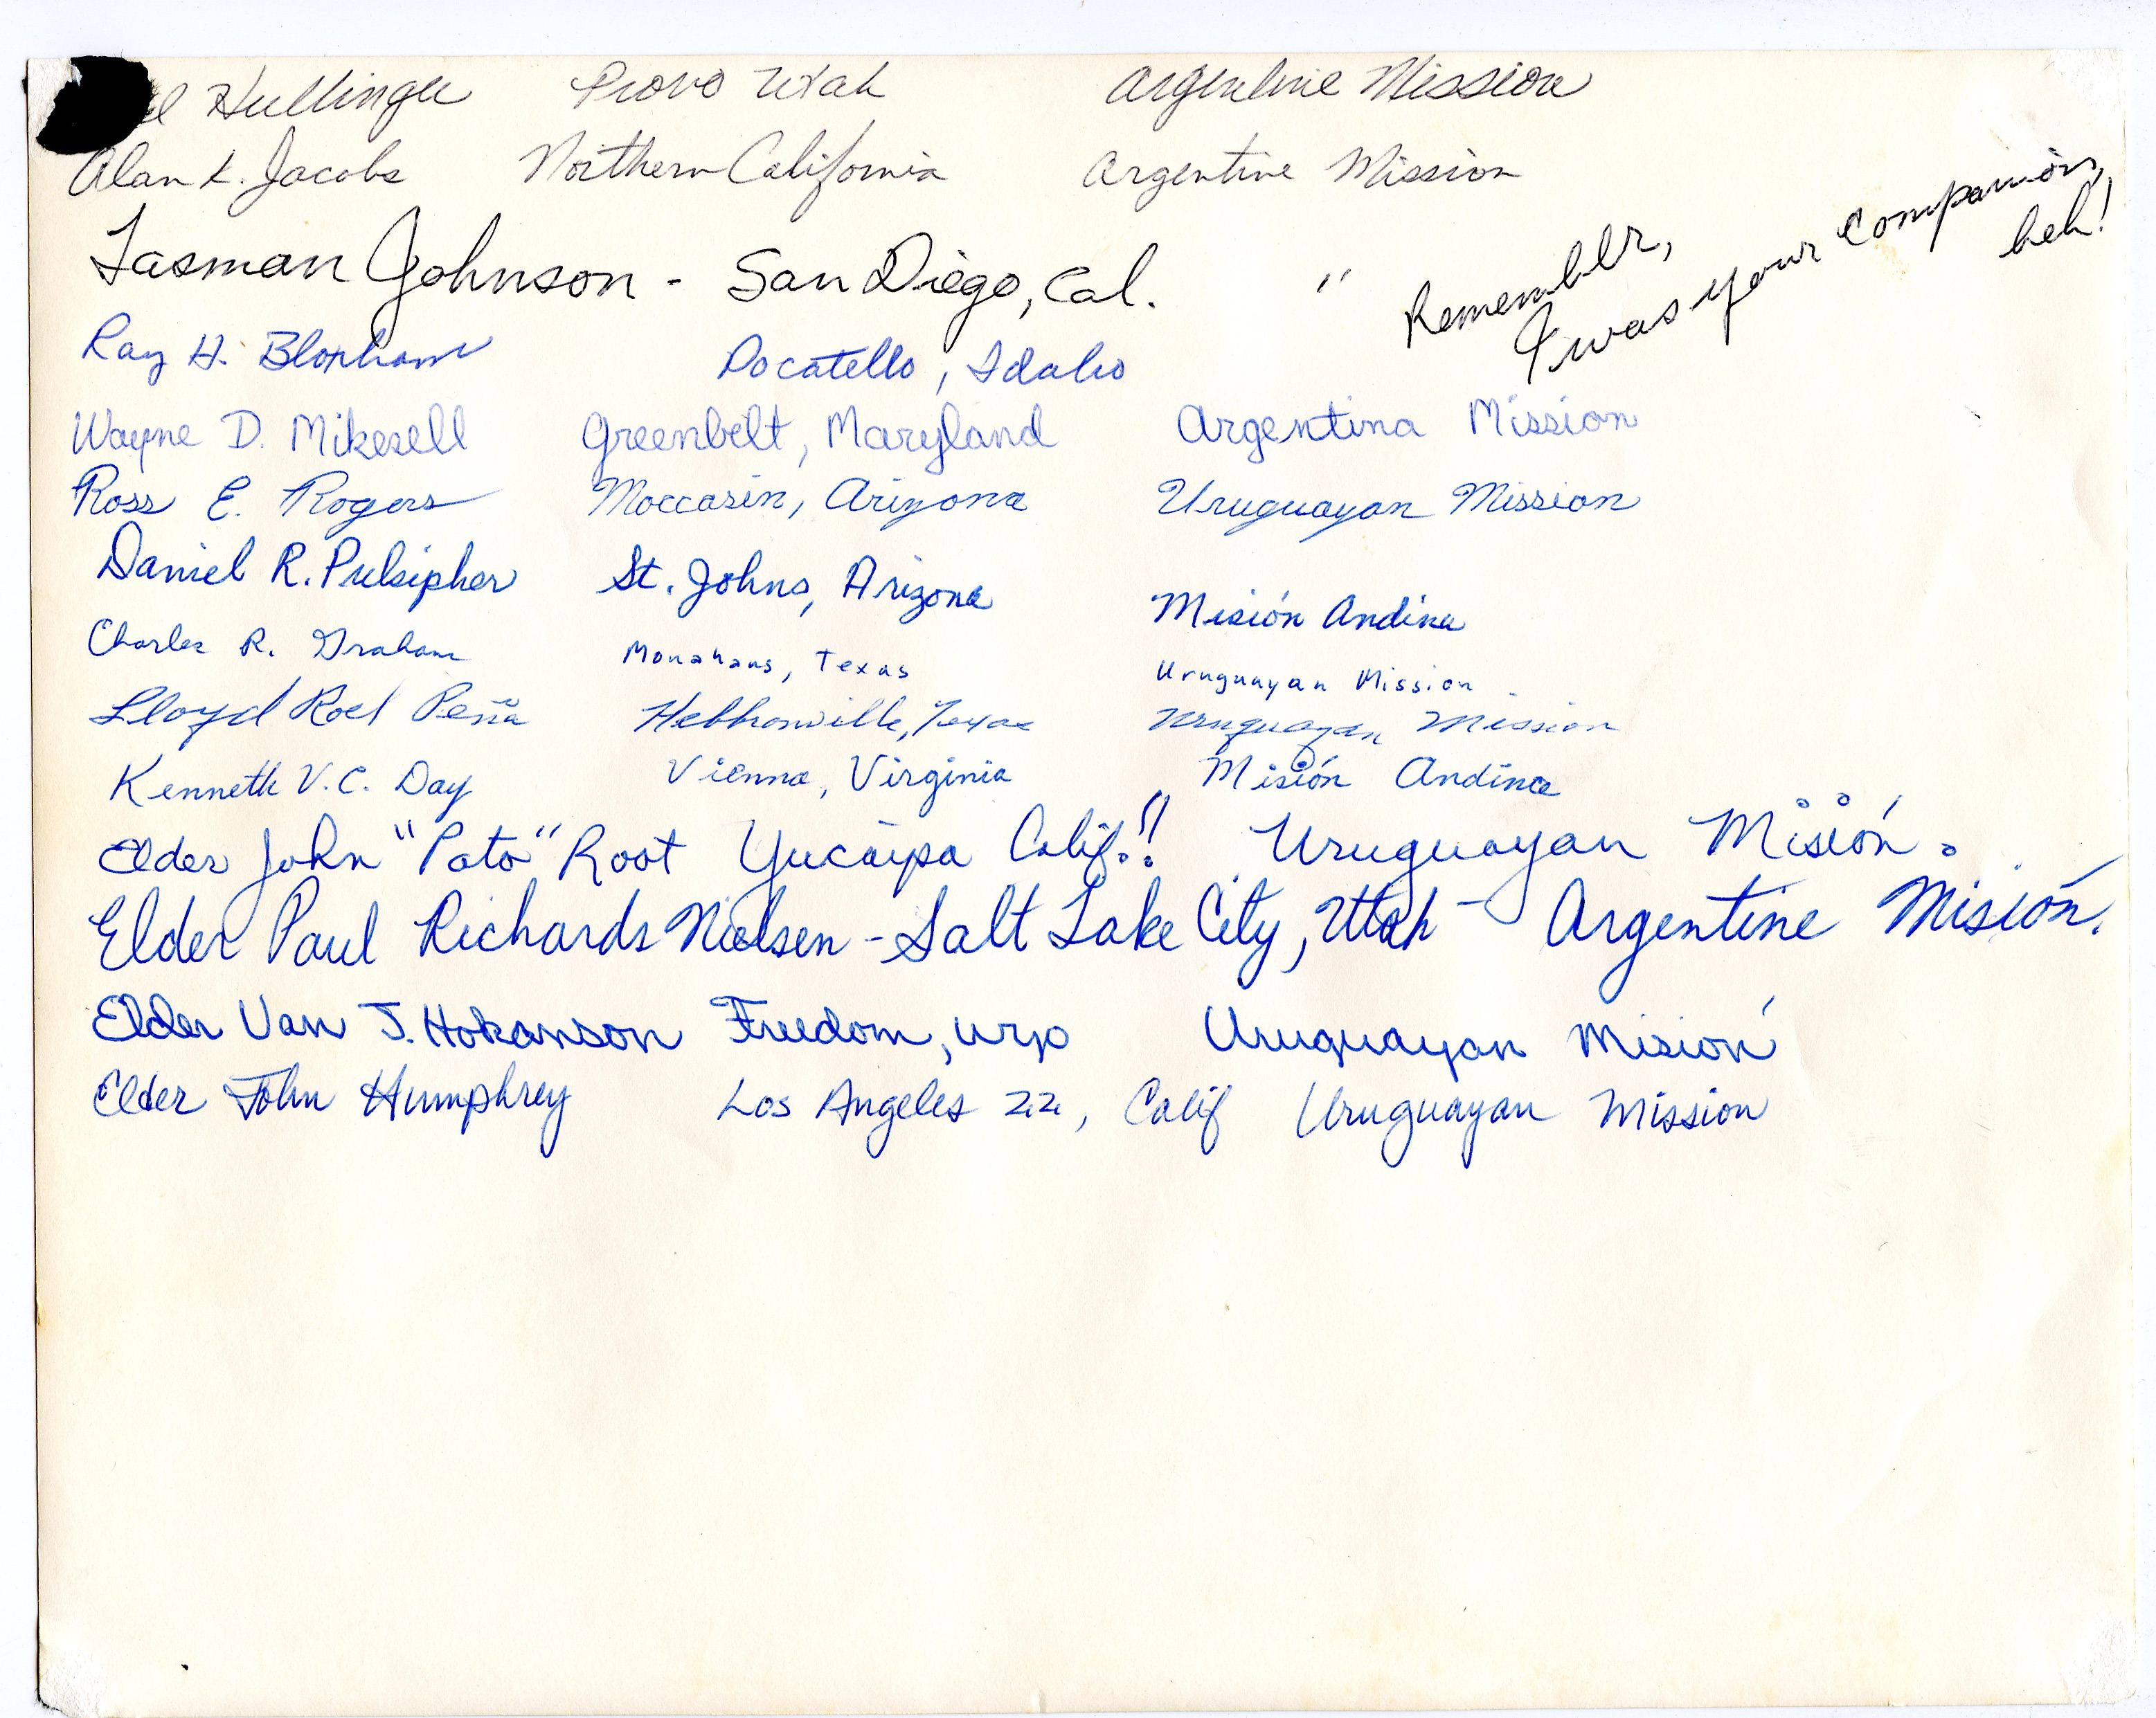 Hullinger Provo Utah Argentine Mission
Alan K. Jacobs Northern California Argentine Mission
Tasman Johnson - San Diego, Cal. "
Remember,
I was your companion,
heh!
Ray H. Bloxham Pocatello, Idaho
Wayne D. Mikesell Greenbelt, Maryland Argentina Mission
Ross E. Rogers Moccasin, Arizona Uruguayan Mission
Daniel R. Pulsipher St. Johns, Arizona Misión Andina
Charles R. Graham Monahans, Texas Uruguayan Mission
Lloyd Roel Peña Hebbronville, Texas Uruguayan Mission
Kenneth V.C. Day Vienna, Virginia Misión Andina
Elder John "Pato" Root Yucaipa Calif!! Uruguayan Misión.
Elder Paul Richards Nielsen - Salt Lake City, Utah - Argentine Misión.
Elder Van J. Hokanson Freedom, Wyo Uruguayan Misión
Elder John Humphrey Los Angeles 22, Calif Uruguayan Mission